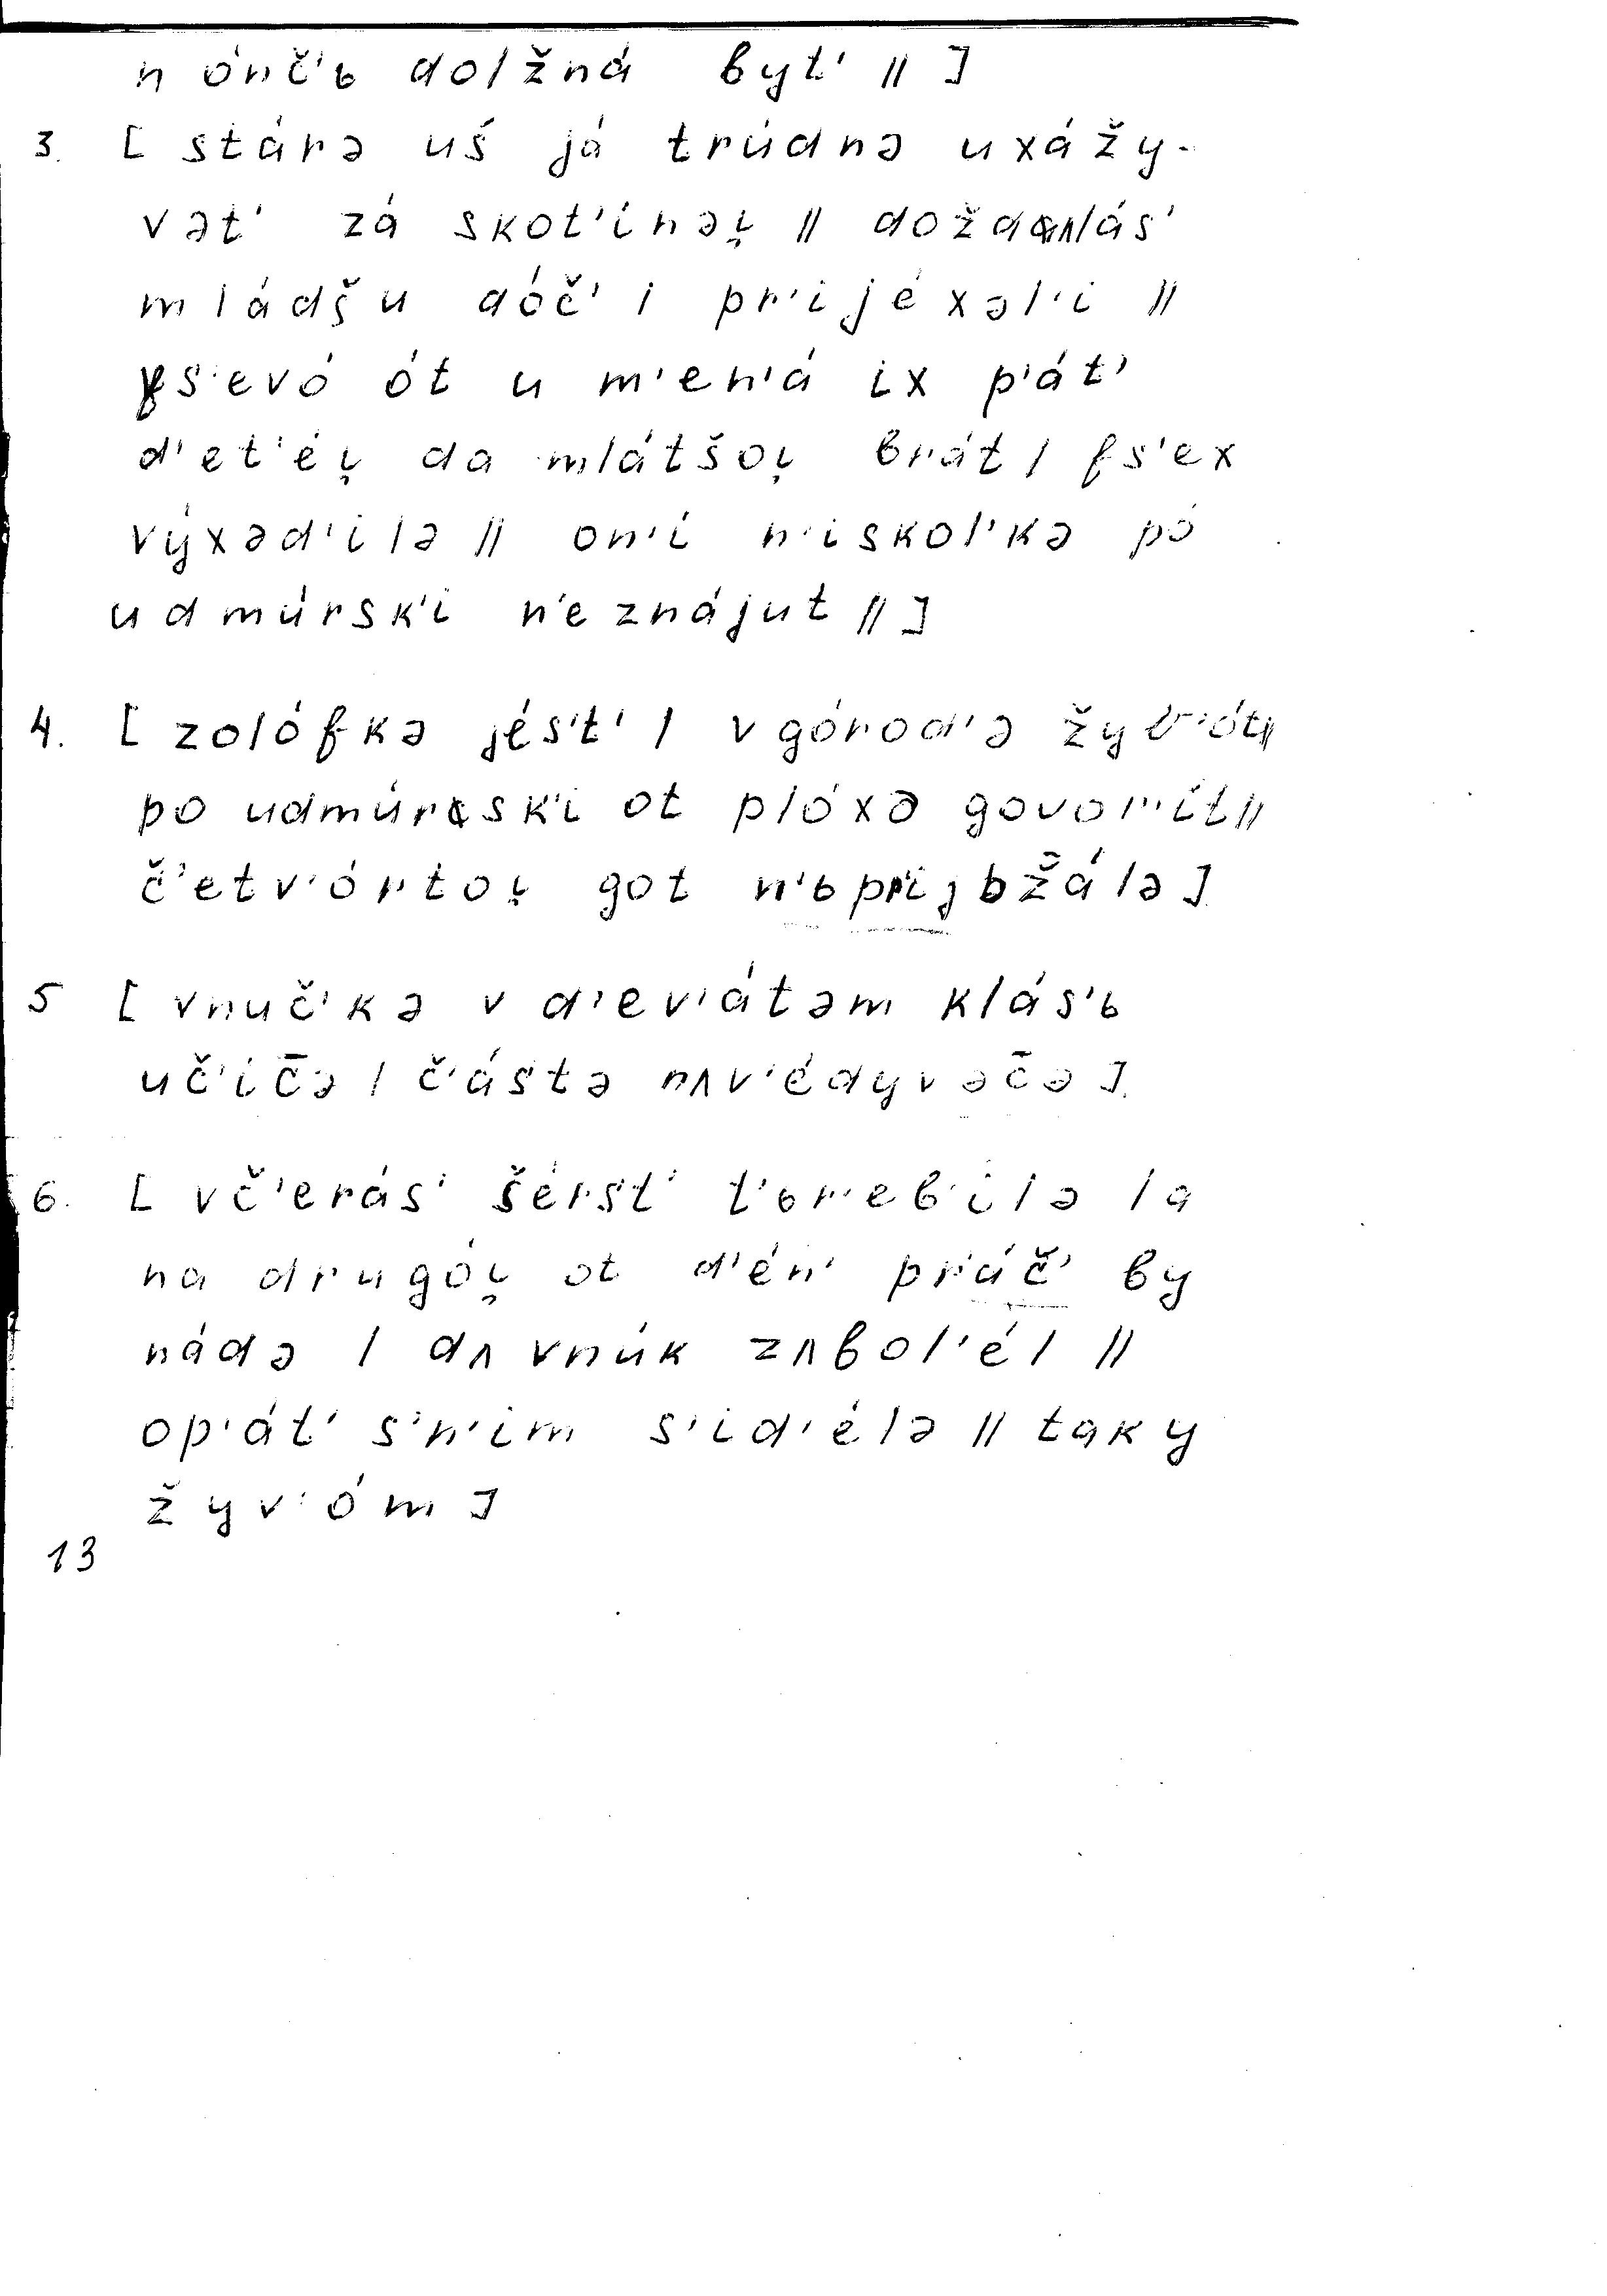 n ónč'ь dolžná byt' || ]
3. [ stárə uš já trúdnə uxážy-
vət' zá skot'ínəi̯ || doždʌlás'
mládšu dóč' | pr'ijéxəl'i ||
fs'evó ót u m'en'á ix p'át'
d'et'éi̯ da mlátšoi̯ brát | fs'ex
výxəd'ilə || on'í n'iskol'kə pó
udmúrsk'i n'e znájut || ]
4. [ zolófkə jés't' | v górod'ə žyv'ót ||
po udmúrsk'i ot plóxə govor'ít ||
č'etv'órtoi̯ got n'ьpr'ijьž̄álə ]
5 [ vnuč'kə v d'ev'átəm klás'ь
uč'ic̄ə | č'ástə nʌv'édyvəc̄ə ]
6. [ vč'erás' šérs't' t'ьr'eb'ílə | a
na drugói̯ ot d'én' pr'áč' by
nádə | dʌ vnúk zʌbol'él ||
op'át' s'n'im s'id'élə || taky
žyv'óm ]
13